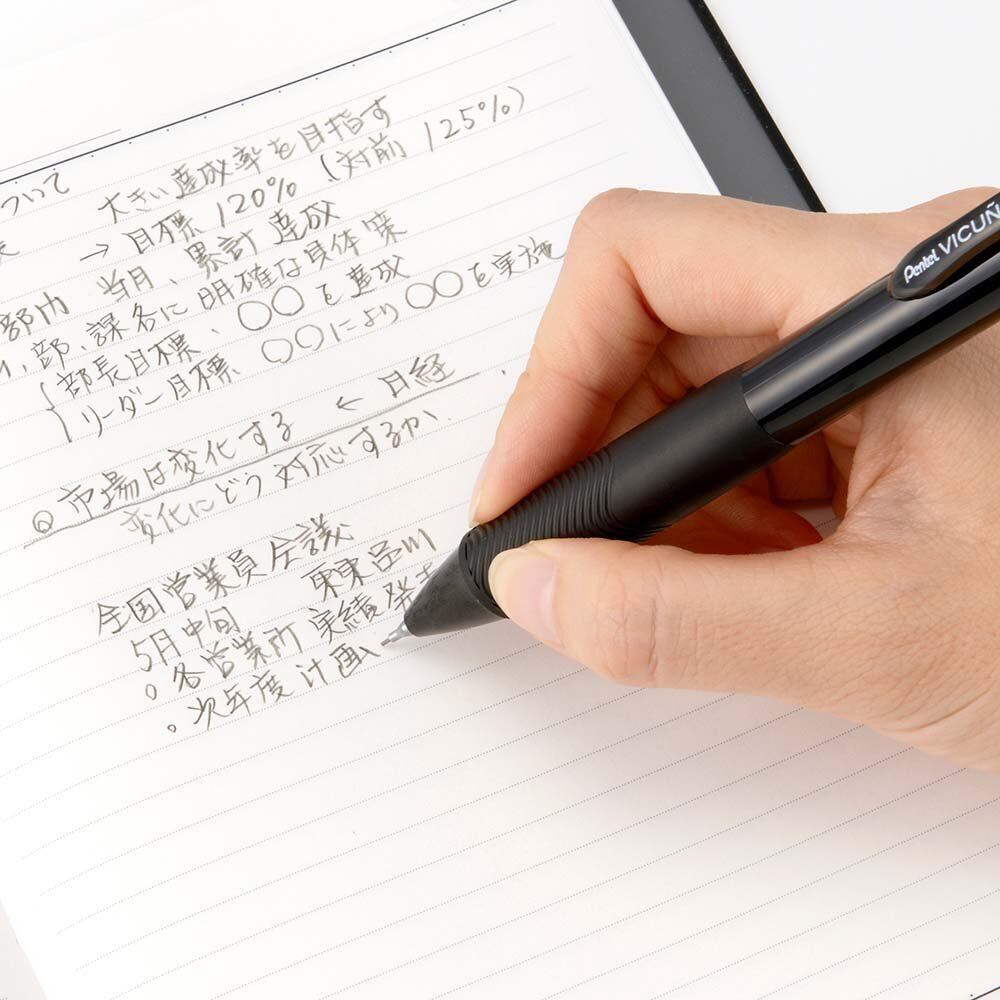 ついて
大きい達成率を目指す
→ 目標 120% (対前 125%)
部内 当月、累計達成
部、課各に明確な具体策
部長目標、〇〇を達成
リーダー目標 〇〇により〇〇を実施
◎ 市場は変化する ← 日経
変化にどう対応するか、
全国営業員会議
5月中旬 東京品川
。各営業所 実績発表
。次年度計画、
Pentel VICUÑ